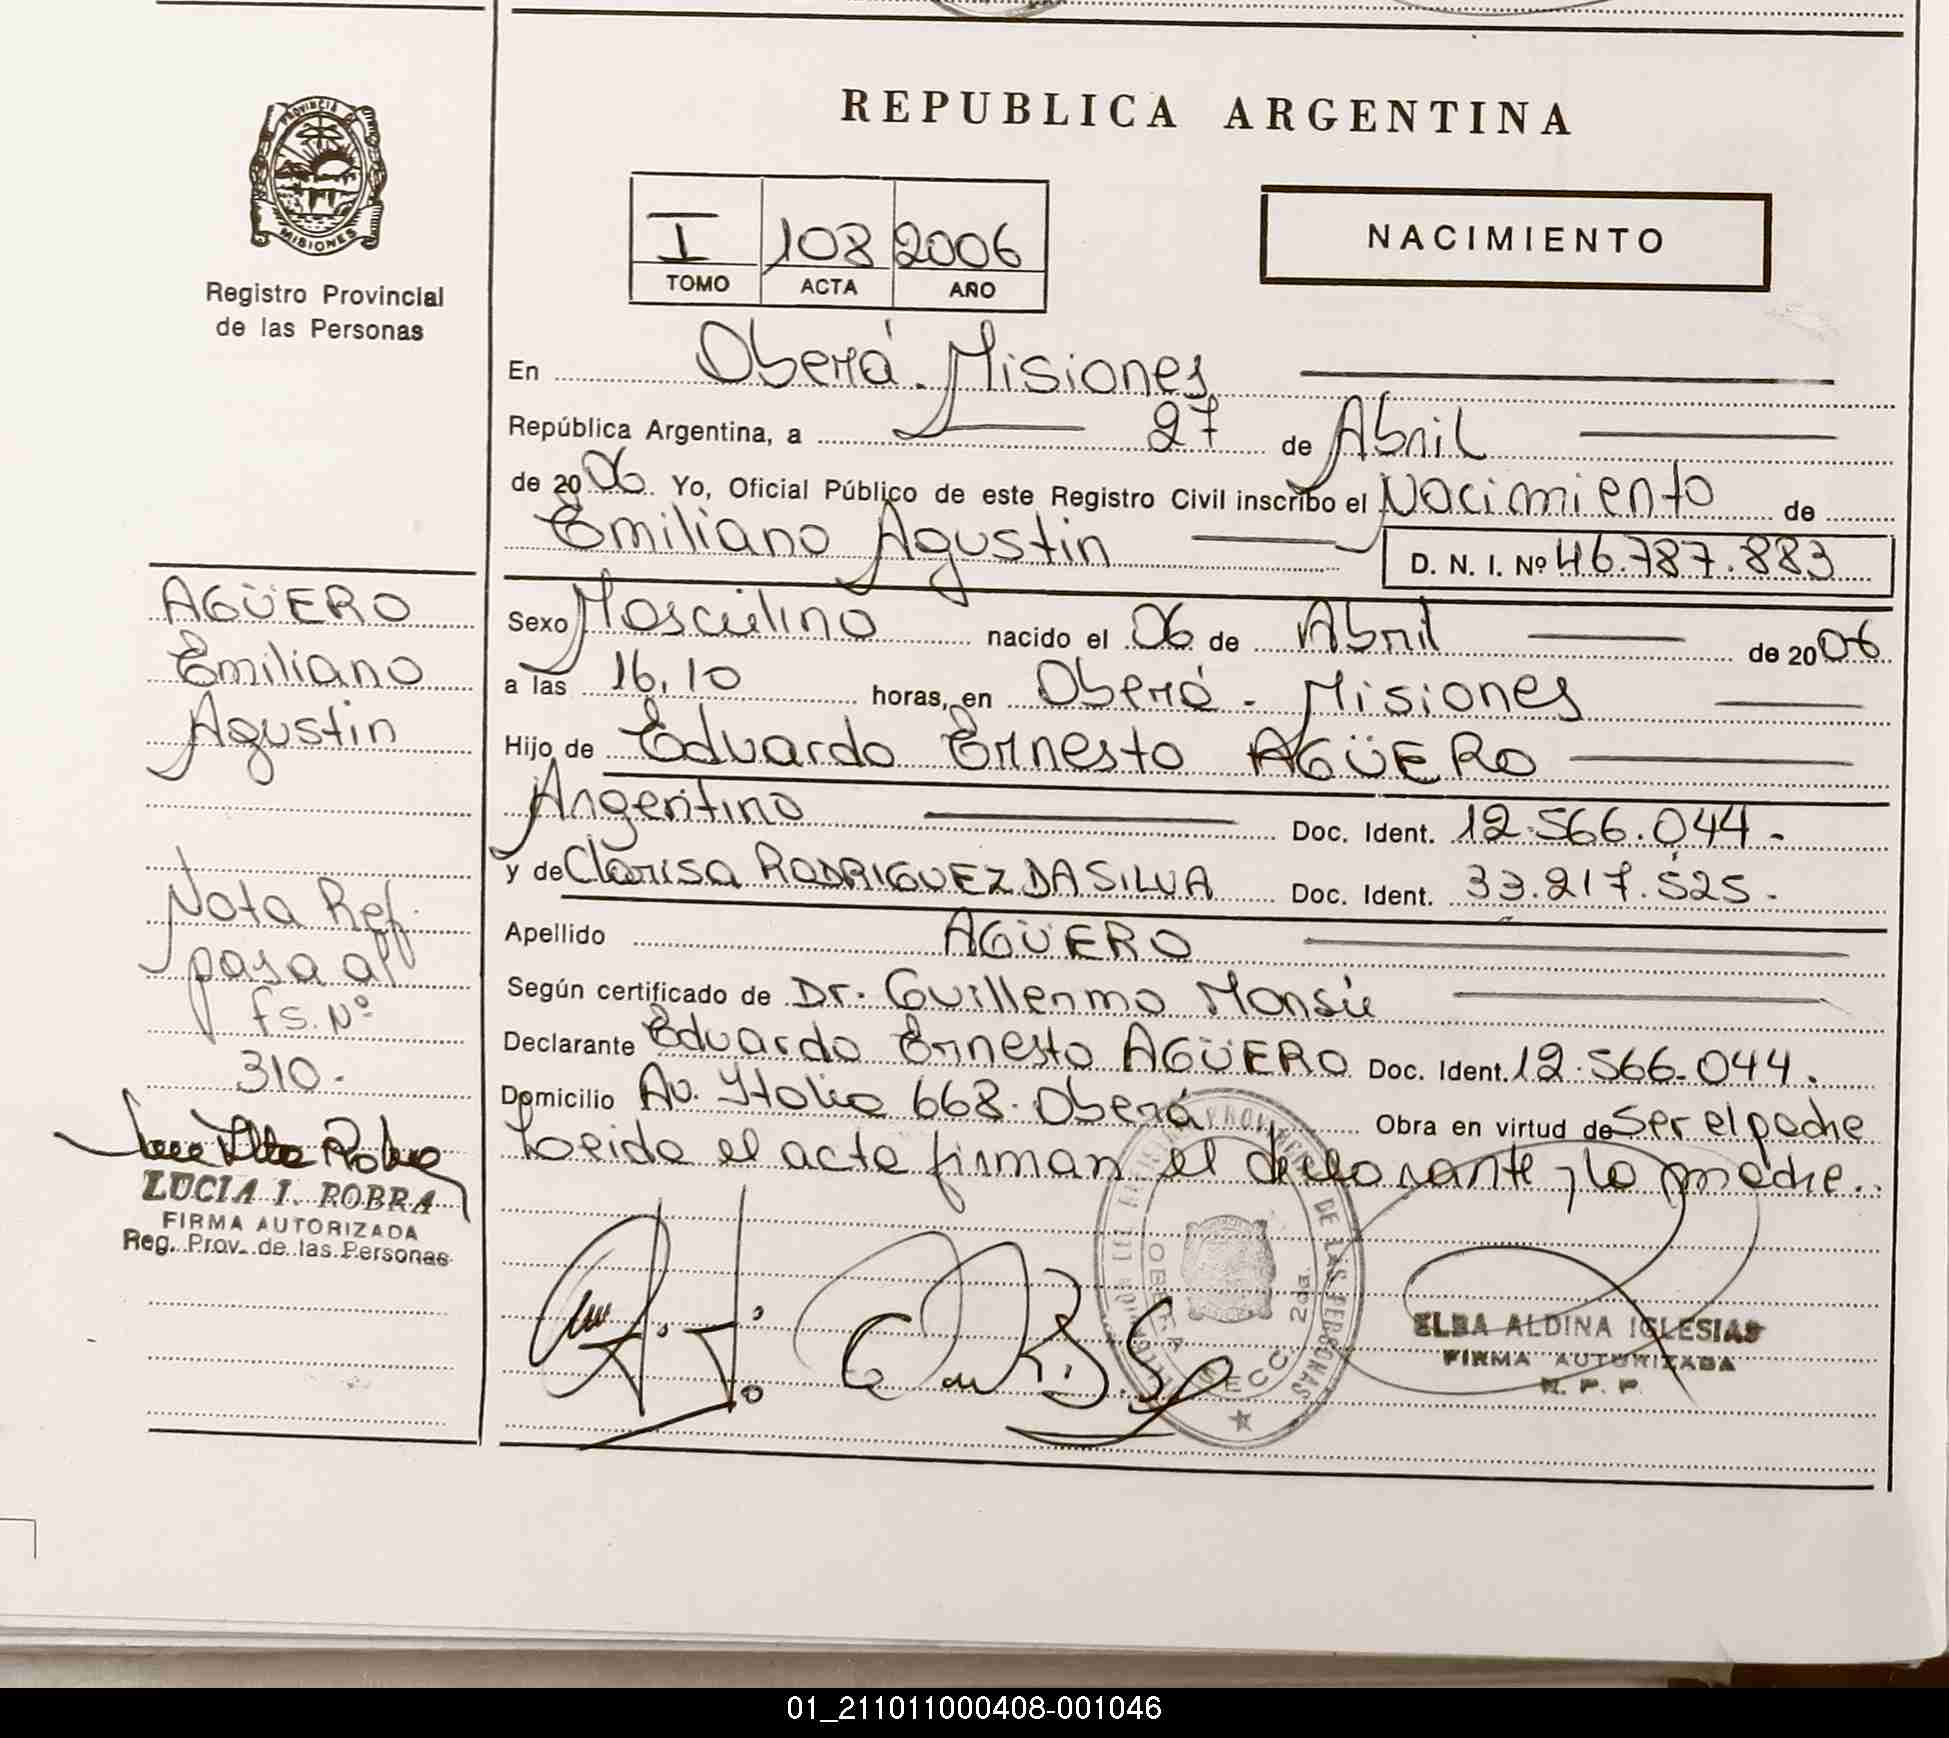 REPUBLICA ARGENTINA
PROVINCIA DE
MISIONES
Registro Provincial
de las Personas
I 108 2006
TOMO ACTA AÑO
NACIMIENTO
En Oberá. Misiones
República Argentina, a 27 de Abril
de 2006 Yo, Oficial Público de este Registro Civil inscribo el Nacimiento de
Emiliano Agustin D. N. I. Nº 46.787.883
Sexo Masculino nacido el 06 de Abril de 2006
a las 16,10 horas, en Oberá - Misiones
Hijo de Eduardo Ernesto AGÜERO
Argentino Doc. Ident. 12.566.044.
y de Clarisa RODRIGUEZ DA SILVA Doc. Ident. 33.217.525.
Apellido AGÜERO
Según certificado de Dr. Guillermo
Declarante Eduardo Ernesto AGÜERO Doc. Ident. 12.566.044.
Domicilio Av. Italia 668. Oberá Obra en virtud de ser el padre
Leida el acta firman el declarante y la madre.
AGÜERO
Emiliano
Agustin
Nota Ref.
pasa al
fs. Nº
310.
LUCIA I. ROBRA
FIRMA AUTORIZADA
Reg. Prov. de las Personas
PROVINCIAL DE LAS PERSONAS
OBERA
SECC. 2da.
ELBA ALDINA IGLESIAS
FIRMA AUTORIZADA
R. P. P.
01_211011000408-001046